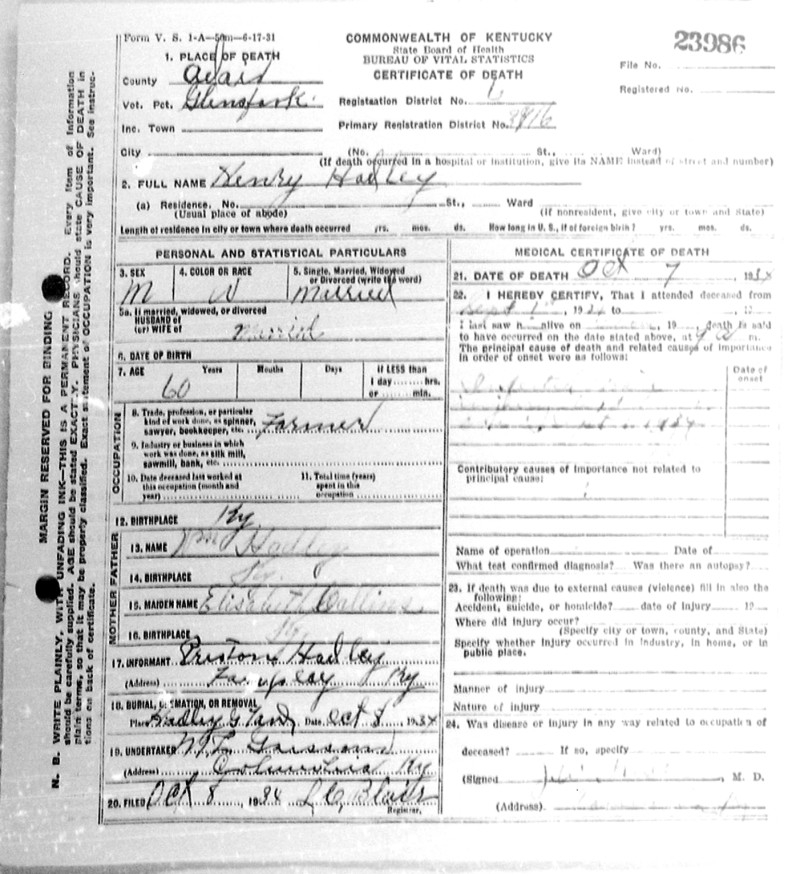 Form V. S. 1-A—50m—6-17-31
COMMONWEALTH OF KENTUCKY
State Board of Health
BUREAU OF VITAL STATISTICS
CERTIFICATE OF DEATH
23986
File No.
Registered No.
1. PLACE OF DEATH
County Adair
Vot. Pct. Glensfork
Inc. Town
City
Registration District No. 6
Primary Registration District No.
(No. St., Ward)
(If death occurred in a hospital or institution, give its NAME instead of street and number)
2. FULL NAME Henry Hadley
(a) Residence. No. St., Ward
(Usual place of abode) (If nonresident, give city or town and State)
Length of residence in city or town where death occurred yrs. mos. ds. How long in U. S., if of foreign birth? yrs. mos. ds.
PERSONAL AND STATISTICAL PARTICULARS
3. SEX
M
4. COLOR OR RACE
W
5. Single, Married, Widowed
or Divorced (write the word)
Married
5a. If married, widowed, or divorced
HUSBAND of
(or) WIFE of
Married
6. DATE OF BIRTH
7. AGE Years Months Days If LESS than
1 day hrs.
or min.
60
OCCUPATION
8. Trade, profession, or particular
kind of work done, as spinner,
sawyer, bookkeeper, etc. Farmer
9. Industry or business in which
work was done, as silk mill,
sawmill, bank, etc.
10. Date deceased last worked at
this occupation (month and
year)
11. Total time (years)
spent in this
occupation
12. BIRTHPLACE Ky
FATHER
13. NAME Wm Hadley
14. BIRTHPLACE Ky
MOTHER
15. MAIDEN NAME Elizabeth Collins
16. BIRTHPLACE Ky
17. INFORMANT Preston Hadley
(Address) Ky
18. BURIAL, CREMATION, OR REMOVAL
Place Hadley G. Yard Date Oct 8 1934
19. UNDERTAKER
(Address) Columbia Ky
20. FILED Oct 8, 1934 L C Blair
Registrar.
MEDICAL CERTIFICATE OF DEATH
21. DATE OF DEATH Oct 7 1934
22. I HEREBY CERTIFY, That I attended deceased from
Sept 1934 to , 19
I last saw h alive on , 19 , death is said
to have occurred on the date stated above, at m.
The principal cause of death and related causes of importance
in order of onset were as follows:
Date of
onset
1934
Contributory causes of importance not related to
principal cause:
Name of operation Date of
What test confirmed diagnosis? Was there an autopsy?
23. If death was due to external causes (violence) fill in also the
following:
Accident, suicide, or homicide? date of injury 19
Where did injury occur?
(Specify city or town, county, and State)
Specify whether injury occurred in industry, in home, or in
public place.
Manner of injury
Nature of injury
24. Was disease or injury in any way related to occupation of
deceased? If so, specify
(Signed , M. D.
(Address)
MARGIN RESERVED FOR BINDING
N. B. WRITE PLAINLY, WITH UNFADING INK—THIS IS A PERMANENT RECORD. Every item of information
should be carefully supplied. AGE should be stated EXACTLY. PHYSICIANS should state CAUSE OF DEATH in
plain terms, so that it may be properly classified. Exact statement of OCCUPATION is very important. See instruc-
tions on back of certificate.